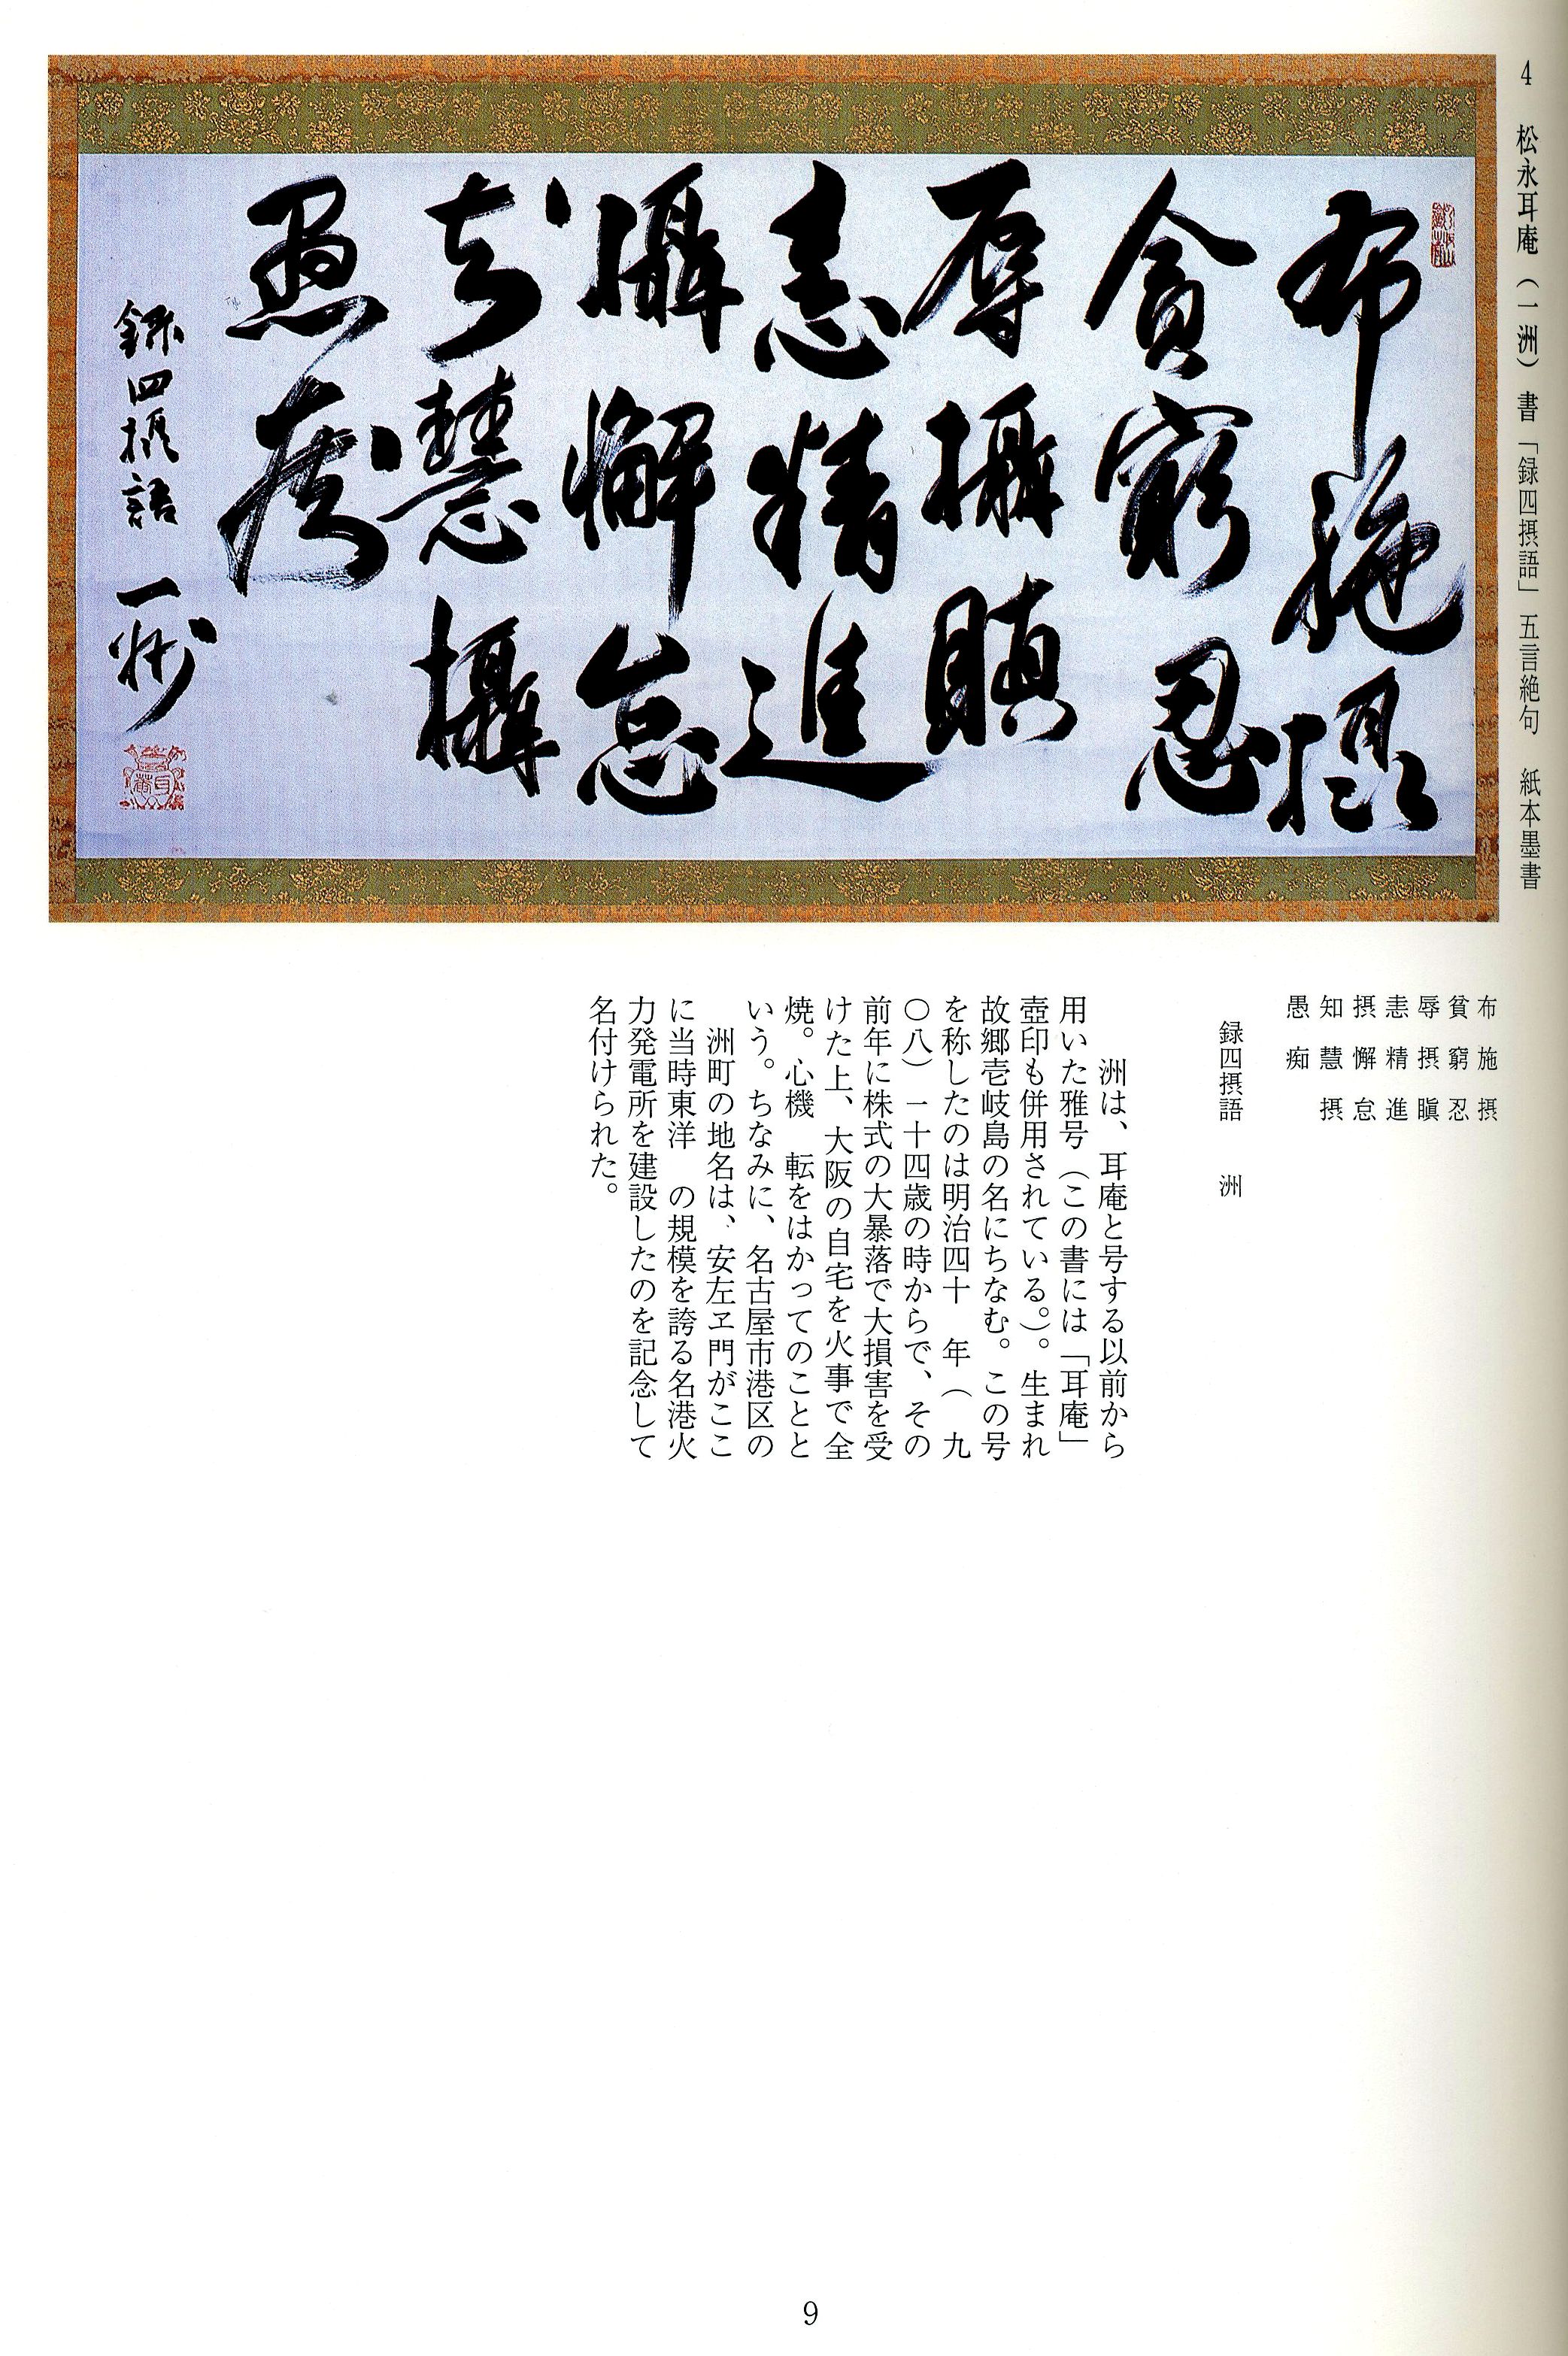 4　松永耳庵（一洲）書「録四摂語」五言絶句　紙本墨書
布施摂
貪窮忍
辱攝瞋
恚精進
攝懈怠
知慧攝
愚痴
録四摂語　一洲
耳庵
布施摂
貧窮忍
辱摂瞋
恚精進
摂懈怠
知慧摂
愚痴
録四摂語　洲
洲は、耳庵と号する以前から
用いた雅号（この書には「耳庵」
壺印も併用されている。）。生まれ
故郷壱岐島の名にちなむ。この号
を称したのは明治四十　年（　九
〇八）一十四歳の時からで、その
前年に株式の大暴落で大損害を受
けた上、大阪の自宅を火事で全
焼。心機　転をはかってのことと
いう。ちなみに、名古屋市港区の
洲町の地名は、安左ヱ門がここ
に当時東洋　の規模を誇る名港火
力発電所を建設したのを記念して
名付けられた。
9